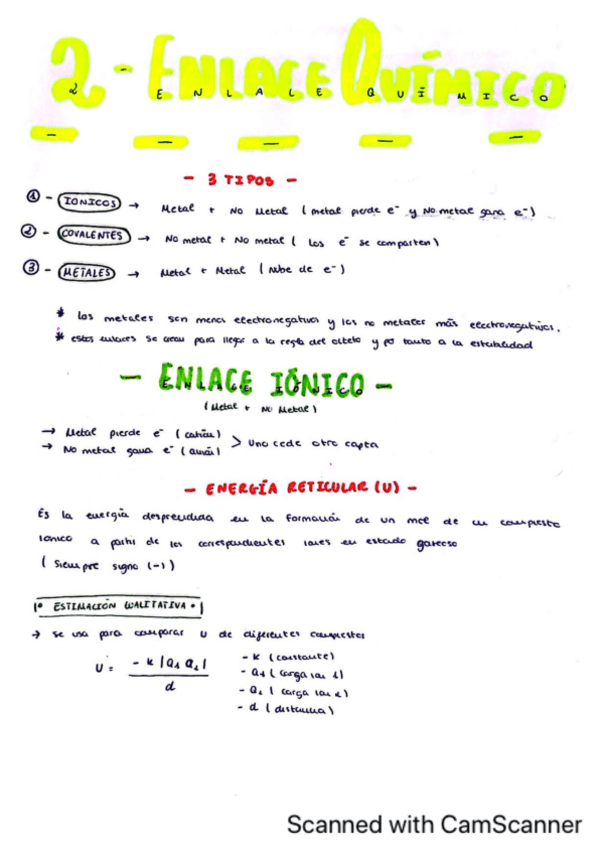 2 - ENLACE QUÍMICO
2 ENLACE QUÍMICO
- 3 TIPOS -
① - IONICOS → Metal + No Metal ( metal pierde e⁻ y No metal gana e⁻)
② - COVALENTES → No metal + No metal ( Los e⁻ se comparten)
③ - METALES → Metal + Metal ( nube de e⁻)
* Los metales son menos electronegativos y los no metales más electronegativos.
* estos enlaces se crean para llegar a la regla del octeto y po tanto a la estabilidad
- ENLACE IÓNICO -
( Metal + No Metal )
→ Metal pierde e⁻ ( catión)
→ No metal gana e⁻ ( anión)
> Uno cede otro capta
- ENERGÍA RETICULAR (U) -
Es la energía desprendida en la formación de un mol de un compuesto
iónico a partir de los correspondientes iones en estado gaseoso
( Siempre signo (-) )
1º ESTIMACIÓN CUALITATIVA •
→ se usa para comparar U de diferentes compuestos
U = - k | Q₁ Q₂ | / d
- k ( constante)
- Q₁ ( carga ion 1)
- Q₂ ( carga ion 2)
- d ( distancia)
Scanned with CamScanner